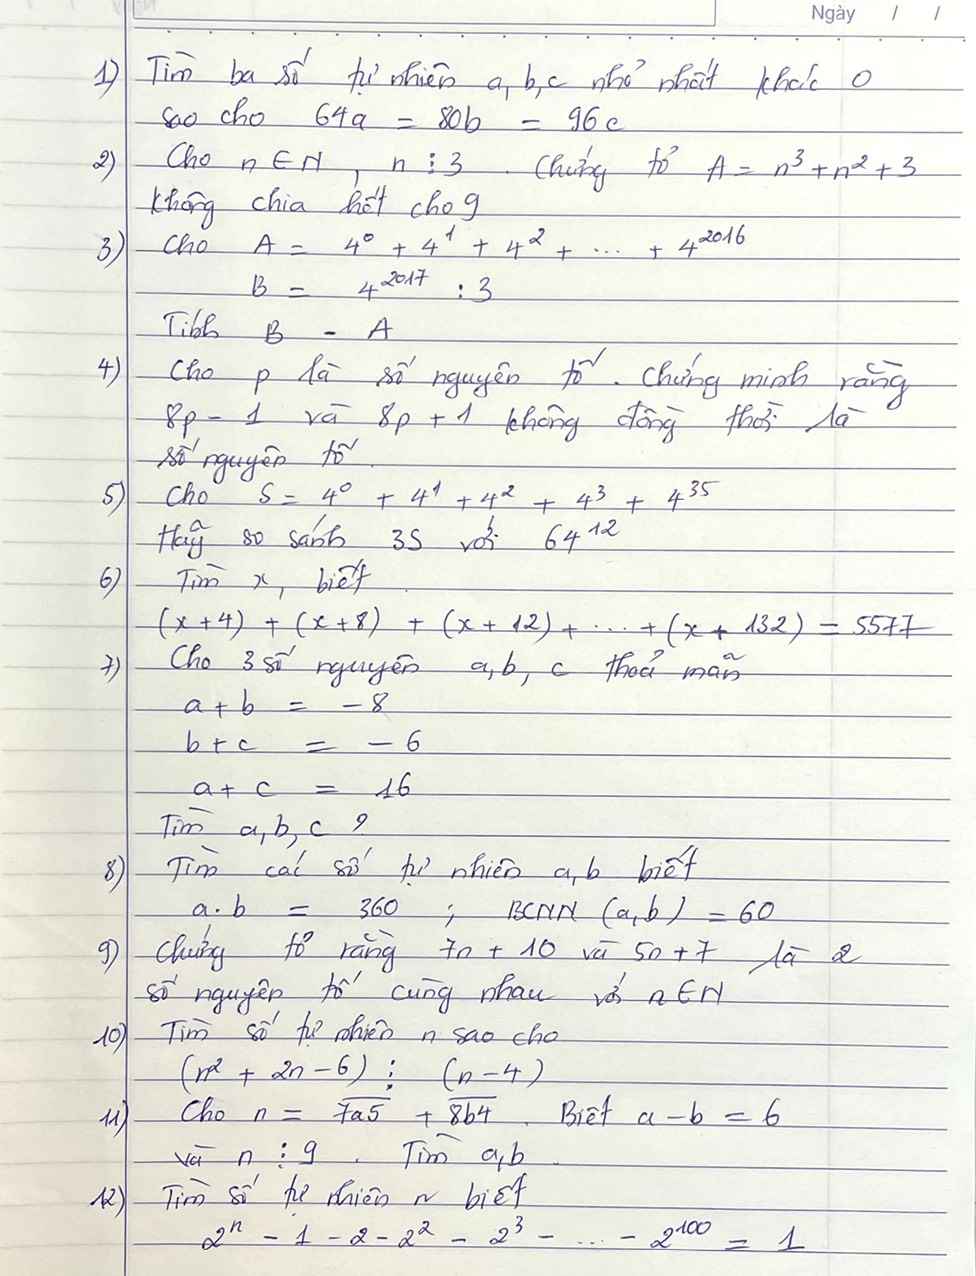 Ngày / /
1) Tìm ba số tự nhiên a, b, c nhỏ nhất khác 0
sao cho 64a = 80b = 96c
2) Cho n ∈ N, n ⋮ 3. Chứng tỏ A = n³ + n² + 3
không chia hết cho 9
3) Cho A = 4⁰ + 4¹ + 4² + ... + 4²⁰¹⁶
B = 4²⁰¹⁷ : 3
Tính B - A
4) Cho p là số nguyên tố. Chứng minh rằng
8p - 1 và 8p + 1 không đồng thời là
số nguyên tố.
5) Cho S = 4⁰ + 4¹ + 4² + 4³ + 4³⁵
Hãy so sánh 3S với 64¹²
6) Tìm x, biết
(x + 4) + (x + 8) + (x + 12) + ... + (x + 132) = 5577
7) Cho 3 số nguyên a, b, c thoả mãn
a + b = -8
b + c = -6
a + c = 16
Tìm a, b, c ?
8) Tìm các số tự nhiên a, b biết
a . b = 360 ; BCNN (a, b) = 60
9) Chứng tỏ rằng 7n + 10 và 5n + 7 là 2
số nguyên tố cùng nhau với n ∈ N
10) Tìm số tự nhiên n sao cho
(n² + 2n - 6) ⋮ (n - 4)
11) Cho n = 7̅a̅5̅ + 8̅b̅4̅. Biết a - b = 6
và n ⋮ 9. Tìm a, b.
12) Tìm số tự nhiên n biết
2ⁿ - 1 - 2 - 2² - 2³ - ... - 2¹⁰⁰ = 1